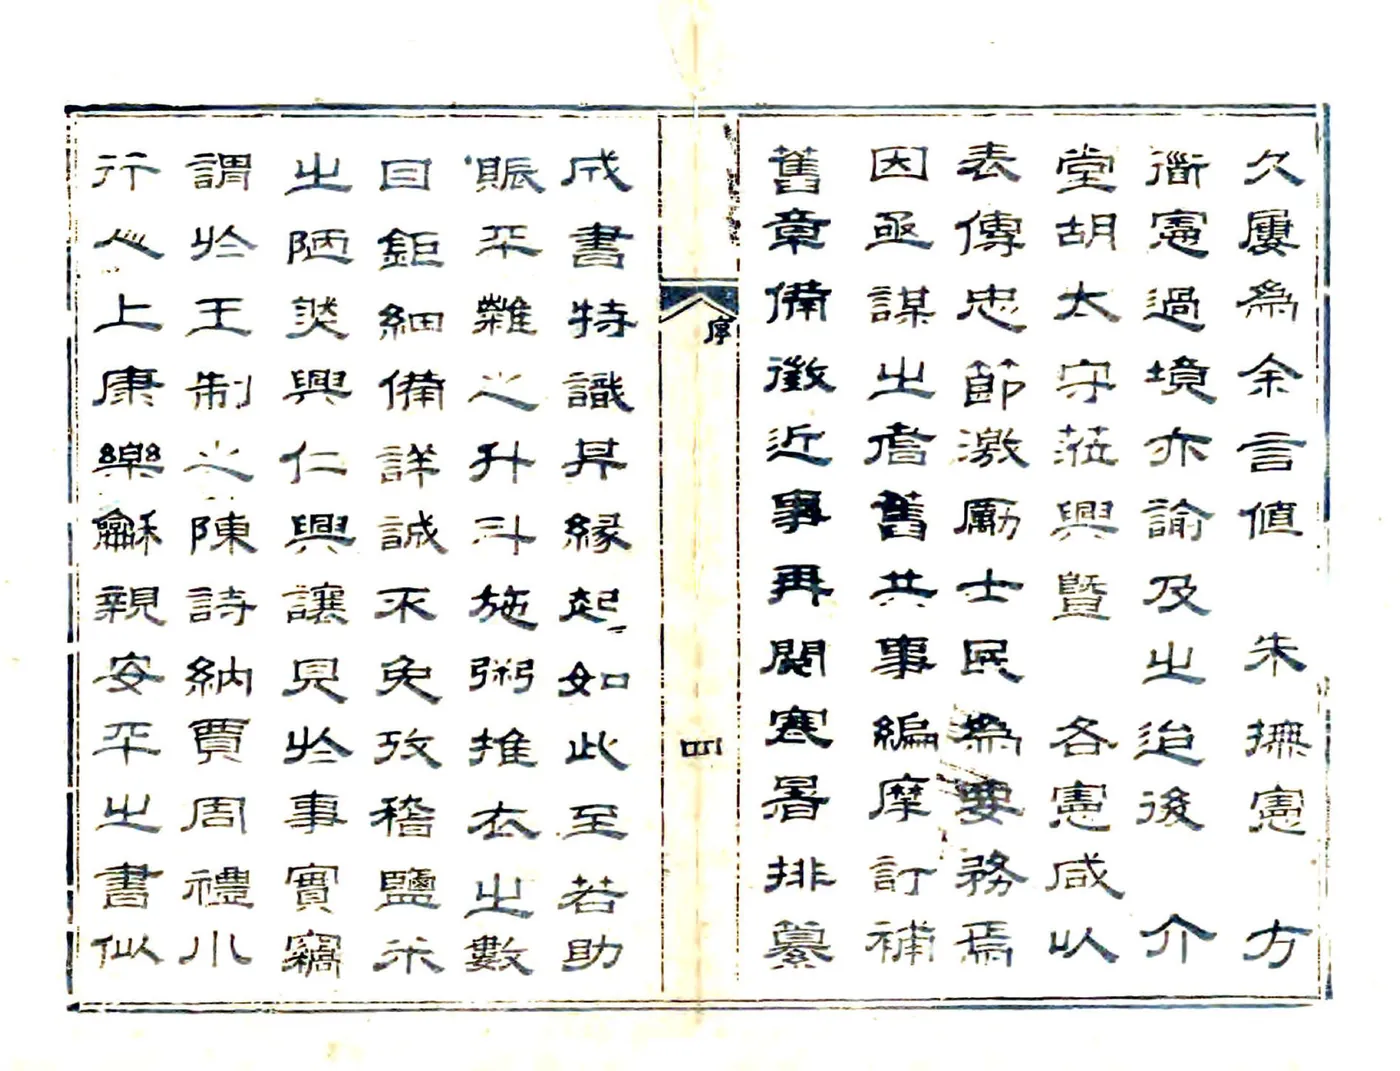 久屢為余言值　朱撫憲　方
衜憲過境亦諭及之迨後　介
堂胡太守蒞興暨　各憲咸以
表傳忠節激勵士民為要務焉
因亟謀之耆舊共事編摩訂補
舊章備徵近事再閱寒暑排纂
序
四
成書特識其緣起如此至若助
賑平糶之升斗施粥推衣之數
目鉅細備詳誠不免攷稽鹽米
之陋然興仁興讓見於事實竊
謂於王制之陳詩納賈周禮小
行人上康樂龢親安平之書似